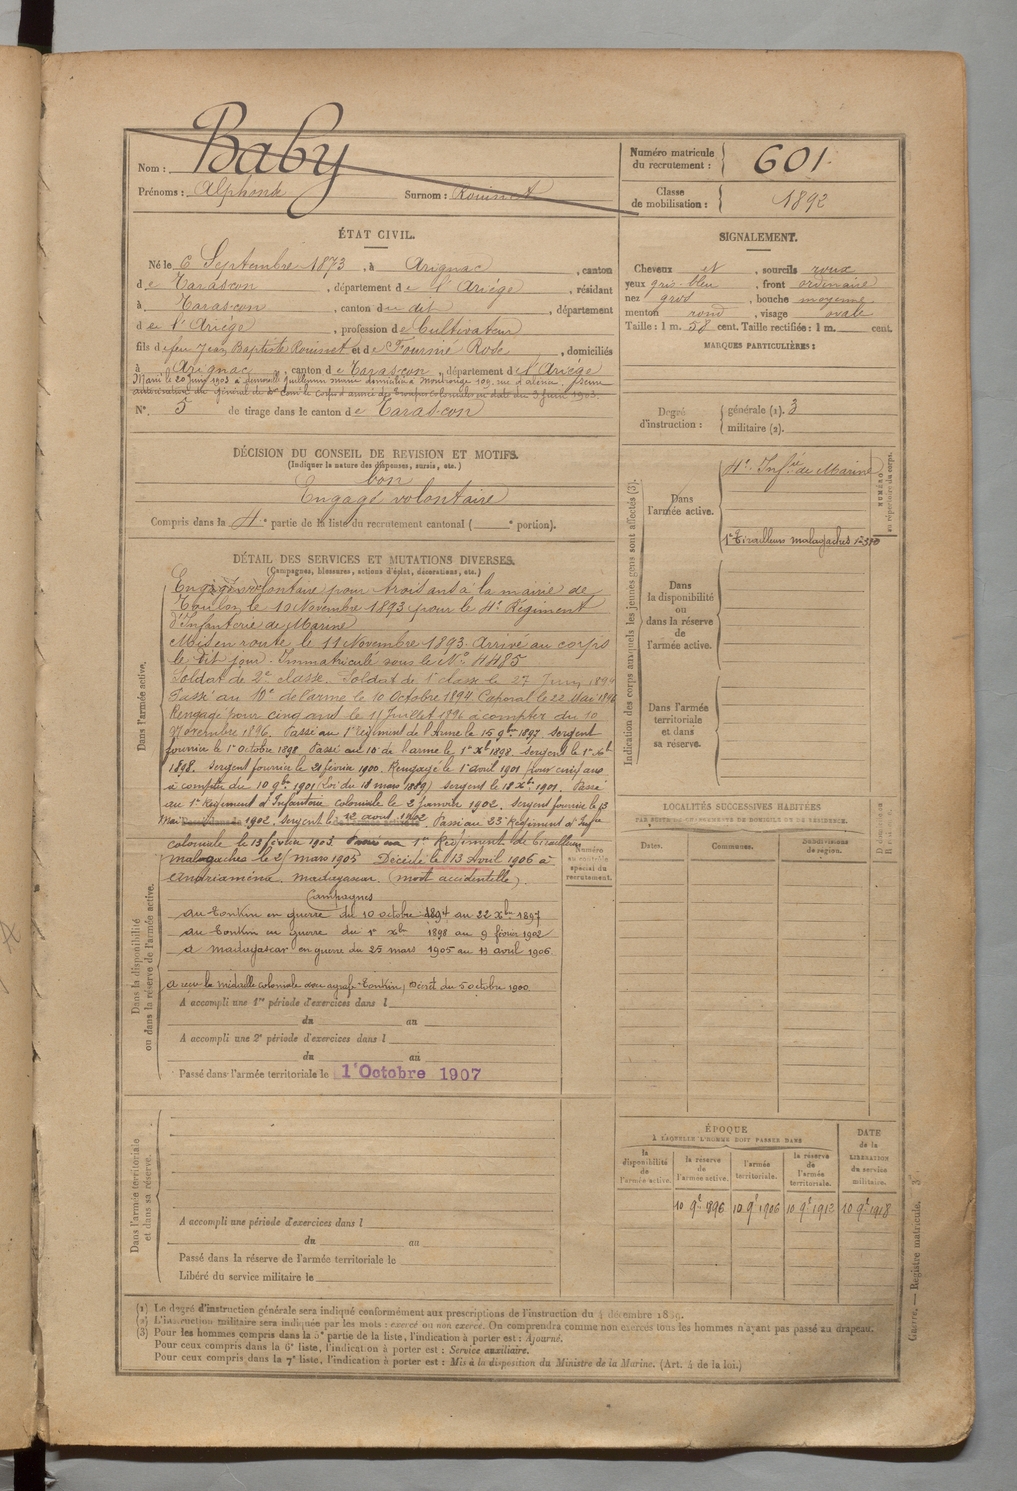 Nom : Baby
Prénoms : Alphonse Surnom : Rouisset
Numéro matricule du recrutement : 601.
Classe de mobilisation : 1892
ÉTAT CIVIL.
Né le 6 Septembre 1873, à Arignac, canton
de Tarascon, département de l'Ariège, résidant
à Tarascon, canton du dit, département
de l'Ariège, profession de Cultivateur
fils de feu Jean Baptiste Rouisset et de Fournié Rose, domiciliés
à Arignac, canton de Tarascon, département de l'Ariège
Marié le 20 Juin 1903 à demoiselle Guillermin Marie domiciliée à Montrouge 109, rue d'
autorisation du général de Don Com le corps d'armée des troupes coloniales en date du 3 Juin 1903.
N°. 5 de tirage dans le canton de Tarascon
SIGNALEMENT.
Cheveux et, sourcils roux
yeux gris-bleu, front ordinaire
nez gros, bouche moyenne
menton rond, visage ovale
Taille : 1 m. 58 cent. Taille rectifiée : 1 m. cent.
MARQUES PARTICULIÈRES :
Degré d'instruction : générale (1). 3
militaire (2).
DÉCISION DU CONSEIL DE REVISION ET MOTIFS.
(Indiquer la nature des dispenses, sursis, etc.)
bon
Engagé volontaire
Compris dans la 4e partie de la liste du recrutement cantonal ( e portion).
DÉTAIL DES SERVICES ET MUTATIONS DIVERSES.
(Campagnes, blessures, actions d'éclat, décorations, etc.)
Dans l'armée active.
Engagé volontaire pour trois ans à la mairie de
Toulon le 10 Novembre 1893 pour le 4e Régiment
d'Infanterie de Marine
Mis en route le 11 Novembre 1893. Arrivé au corps
le dit jour. Immatriculé sous le No 4485
Soldat de 2e classe. Soldat de 1e classe le 27 Juin 1894
Passé au 10e de l'arme le 10 Octobre 1894. Caporal le 22 Mai 1896
Rengagé pour cinq ans le 11 Juillet 1896 à compter du 10
Novembre 1896. Passé au 1er Régiment de l'Arme le 15 9bre 1897. Sergent
fourrier le 1er octobre 1898. Passé au 10e de l'arme le 1er Xbre 1898. Sergent le 1er Xbre
1898. Sergent fourrier le 21 février 1900. Rengagé le 1er avril 1901 pour cinq ans
à compter du 10 9bre 1901 (Loi du 18 mars 1889) Sergent le 18 Xbre 1901. Passé
au 1er Régiment d'Infanterie coloniale le 2 janvier 1902. Sergent fourrier le 13
Mai 1902. Sergent le 12 avout 1902. Passé au 23e Régiment d'Infrie
coloniale le 13 février 1903. Passé au 1er Régiment de Tirailleurs
malgaches le 25 mars 1905 Décédé le 13 Avril 1906 à
Andriaména. Madagascar. (mort accidentelle).
Campagnes
Au Tonkin en guerre du 10 octobre 1894 au 22 Xbre 1897
Au Tonkin en guerre du 1er Xbre 1898 au 9 février 1902
à Madagascar en guerre du 25 mars 1905 au 13 avril 1906
A reçu la médaille coloniale avec agrafe Tonkin, Décret du 5 octobre 1900
Dans la disponibilité ou dans la réserve de l'armée active.
A accompli une 1re période d'exercices dans l
du au
A accompli une 2e période d'exercices dans l
du au
Passé dans l'armée territoriale le 1er Octobre 1907
Numéro au contrôle spécial du recrutement.
Dans l'armée territoriale et dans sa réserve.
A accompli une période d'exercices dans l
du au
Passé dans la réserve de l'armée territoriale le
Libéré du service militaire le
Indication des corps auxquels les jeunes gens sont affectés (3).
NUMÉRO au répertoire du corps.
Dans l'armée active.
4e Infrie de Marine
1er Tirailleurs malgaches
Dans la disponibilité ou dans la réserve de l'armée active.
Dans l'armée territoriale et dans sa réserve.
LOCALITÉS SUCCESSIVES HABITÉES
PAR SUITE DE CHANGEMENTS DE DOMICILE OU DE RÉSIDENCE.
Dates. Communes. Subdivisions de région.
ÉPOQUE
À LAQUELLE L'HOMME DOIT PASSER DANS
la disponibilité de l'armée active.
la réserve de l'armée active.
l'armée territoriale.
la réserve de l'armée territoriale.
DATE de la LIBÉRATION du service militaire.
10 9e 1896 10 9e 1906 10 9e 1912 10 9e 1918
Guerre. — Registre matricule. 3.
(1) Le degré d'instruction générale sera indiqué conformément aux prescriptions de l'instruction du 4 décembre 1889.
(2) L'instruction militaire sera indiquée par les mots : exercé ou non exercé. On comprendra comme non exercés tous les hommes n'ayant pas passé au drapeau.
(3) Pour les hommes compris dans la 5e partie de la liste, l'indication à porter est : Ajourné.
Pour ceux compris dans la 6e liste, l'indication à porter est : Service auxiliaire.
Pour ceux compris dans la 7e liste, l'indication à porter est : Mis à la disposition du Ministre de la Marine. (Art. 4 de la loi.)